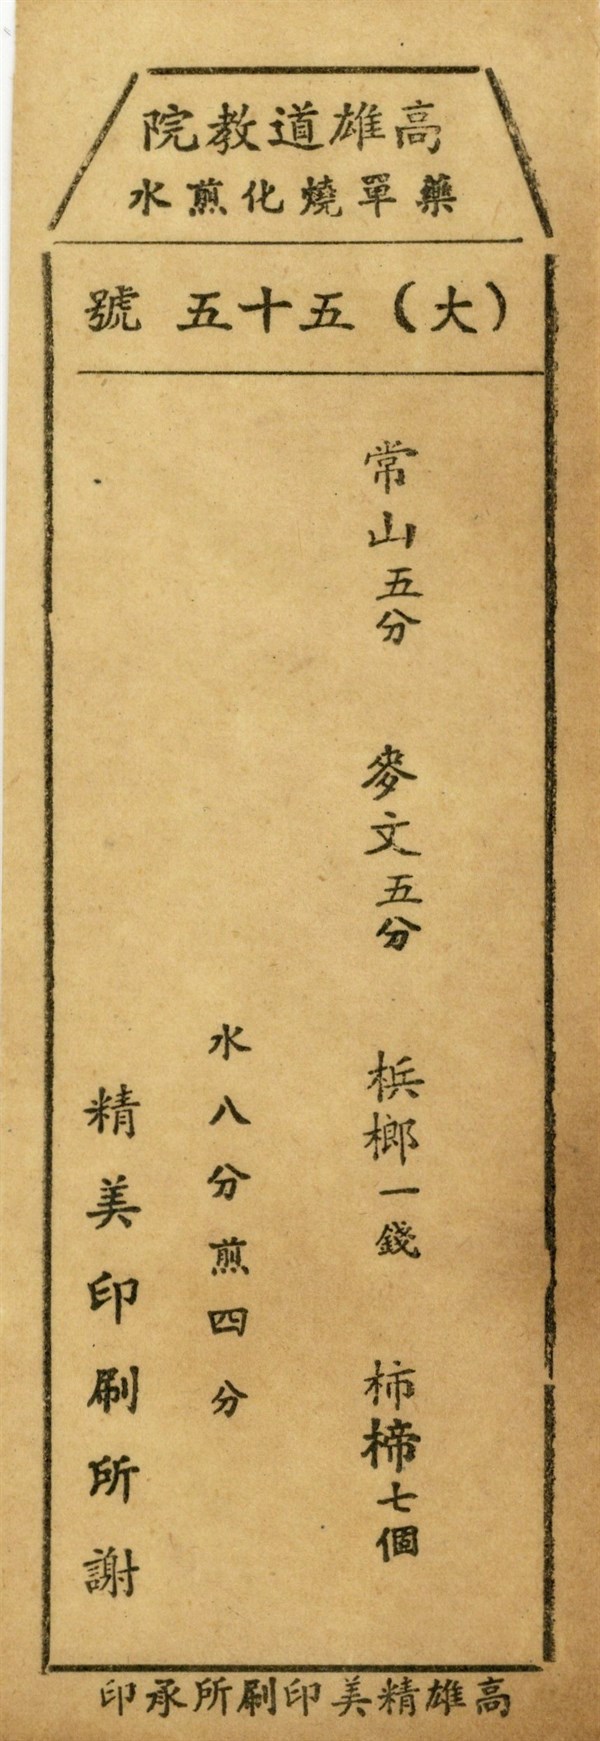 高雄道教院
藥單燒化煎水
（大）五十五 號
常山五分 麥文五分 梹榔一錢 柿楴七個
水八分煎四分
精美印刷所謝
高雄精美印刷所承印